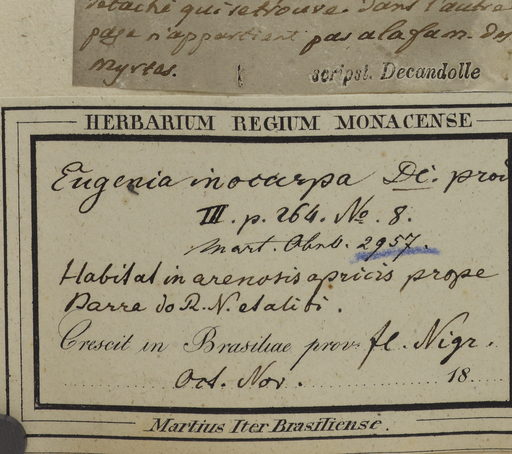 détaché qui se trouve dans l'autre
page n'appartient pas a la fam. des
myrtes.
scripst. Decandolle
HERBARIUM REGIUM MONACENSE
Eugenia inocarpa DC. prod
III. p. 264. No. 8.
Mart. Obs. 2957.
Habitat in arenosis apricis prope
Barra do R. N. et alibi.
Crescit in Brasiliae prov. fl. Nigr.
Oct. Nov. 18
Martius Iter Brasiliense.